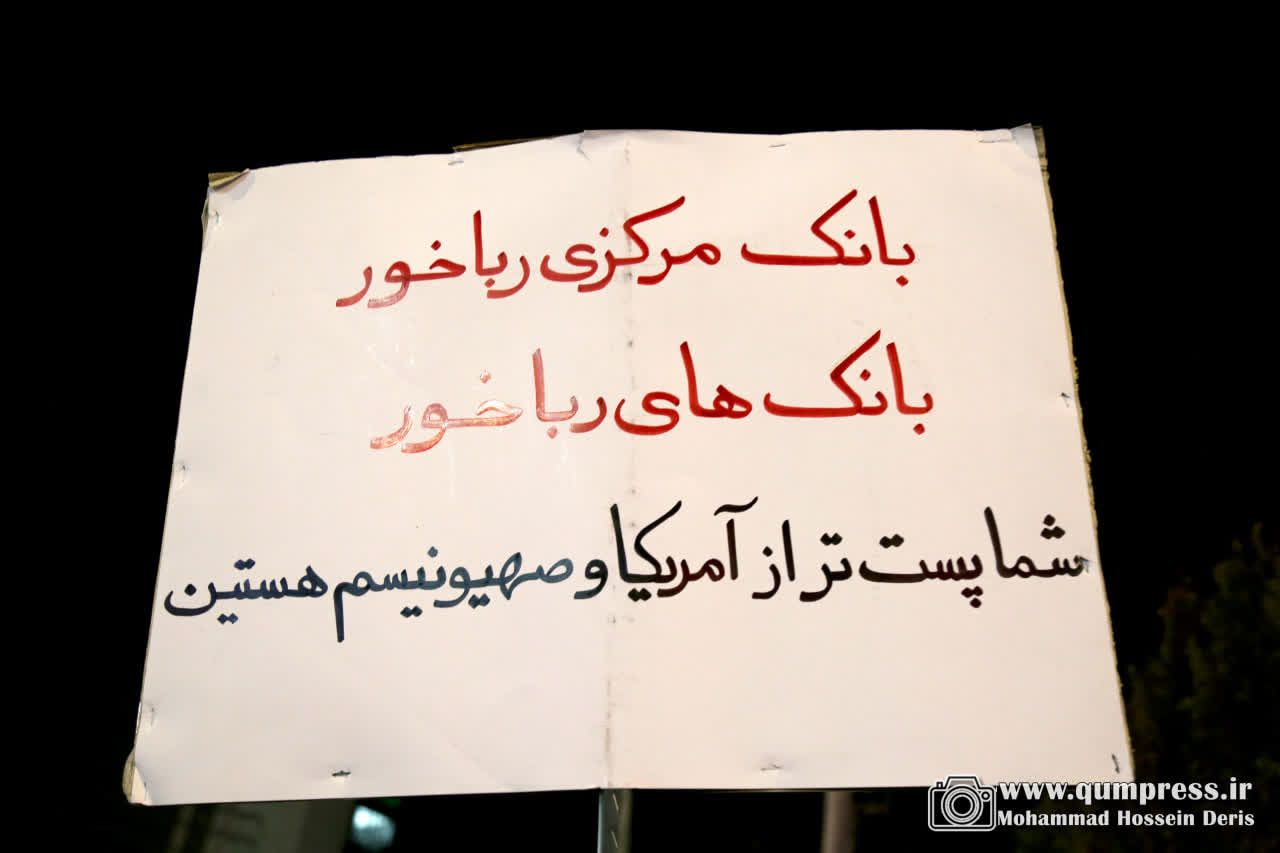 بانک مرکزی رباخور
بانک های رباخور
شما پست تر از آمریکا و صهیونیسم هستین
www.qumpress.ir
Mohammad Hossein Deris